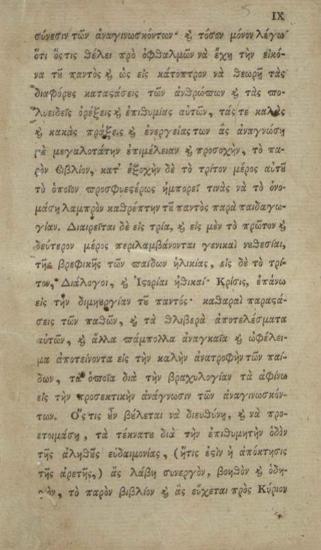 IX
σύνεσιν τῶν ἀναγινωσκόντων· ȣ̓ τόσον μόνον λέγω
ὅτι ὅςτις θέλει πρὸ ὀφθαλμῶν νὰ ἔχῃ τὴν εἰκό-
να τȣ͂ παντὸς ϗ ὡς εἰς κάτοπτρον νὰ θεωρῇ τὰς
διαφόρες καταςάσεις τῶν ἀνθρώπων ϗ τὰς πο-
λυειδεῖς ὀρέξεις ϗ ἐπιθυμίας αὐτῶν, τάςτε καλὰς
ϗ κακὰς πράξεις ϗ ἐνεργείας των ἂς ἀναγνώσῃ
μὲ μεγαλοτάτην ἐπιμέλειαν ϗ προσοχὴν, τὸ πα-
ρὸν βιβλίον, κατ' ἐξοχὴν δὲ τὸ τρίτον μέρος αὐτȣ͂
τὸ ὁποῖον προσφυεςέρως ἠμπορεῖ τινὰς νὰ τὸ ὀνο-
μάσῃ λαμπρὸν καθρέπτην τȣ͂ παντὸς παρὰ παιδαγω-
γίαν. Διαιρεῖται δὲ εἰς τρία, ϗ εἰς μὲν τὸ πρῶτον ϗ
δεύτερον μέρος περιλαμβάνονται γενικαὶ νȣθεσίαι,
τῆς βρεφικῆς τῶν παίδων ἡλικίας, εἰς δὲ τὸ τρί-
τον, Διάλογοι, ϗ Ἱςορίαι ἠθικαί· Κρίσις, ἐπάνω
εἰς τὴν δημιȣργίαν τȣ͂ παντός· καθαραὶ παραςά-
σεις τῶν παθῶν, ϗ τὰ θλιβερὰ ἀποτελέσματα
αὐτῶν, ϗ ἄλλα πάμπολλα ἀναγκαῖα ϗ ὠφέλει-
μα ἀποτείνοντα εἰς τὴν καλὴν ἀνατροφὴν τῶν παί-
δων, τὰ ὁποῖα διὰ τὴν βραχυλογίαν τὰ ἀφίνω
εἰς τὴν προσεκτικὴν ἀνάγνωσιν τῶν ἀναγινωσκόν-
των. Ὅςτις ȣ̓͂ν βȣ́λεται νὰ διευθύνῃ, ϗ νὰ προ-
ετοιμάσῃ, τὰ τέκνατȣ διὰ τὴν ἐπιθυμητὴν ὁδὸν
τῆς ἀληθȣ͂ς εὐδαιμονίας, (ἥτις ἐςὶν ἡ ἀπόκτησις
τῆς ἀρετῆς,) ἂς λάβῃ συνεργὸν, βοηθὸν ϗ ὁδη-
γὸν, τὸ παρὸν βιβλίον ϗ ἂς εὔχεται πρὸς Κύριον